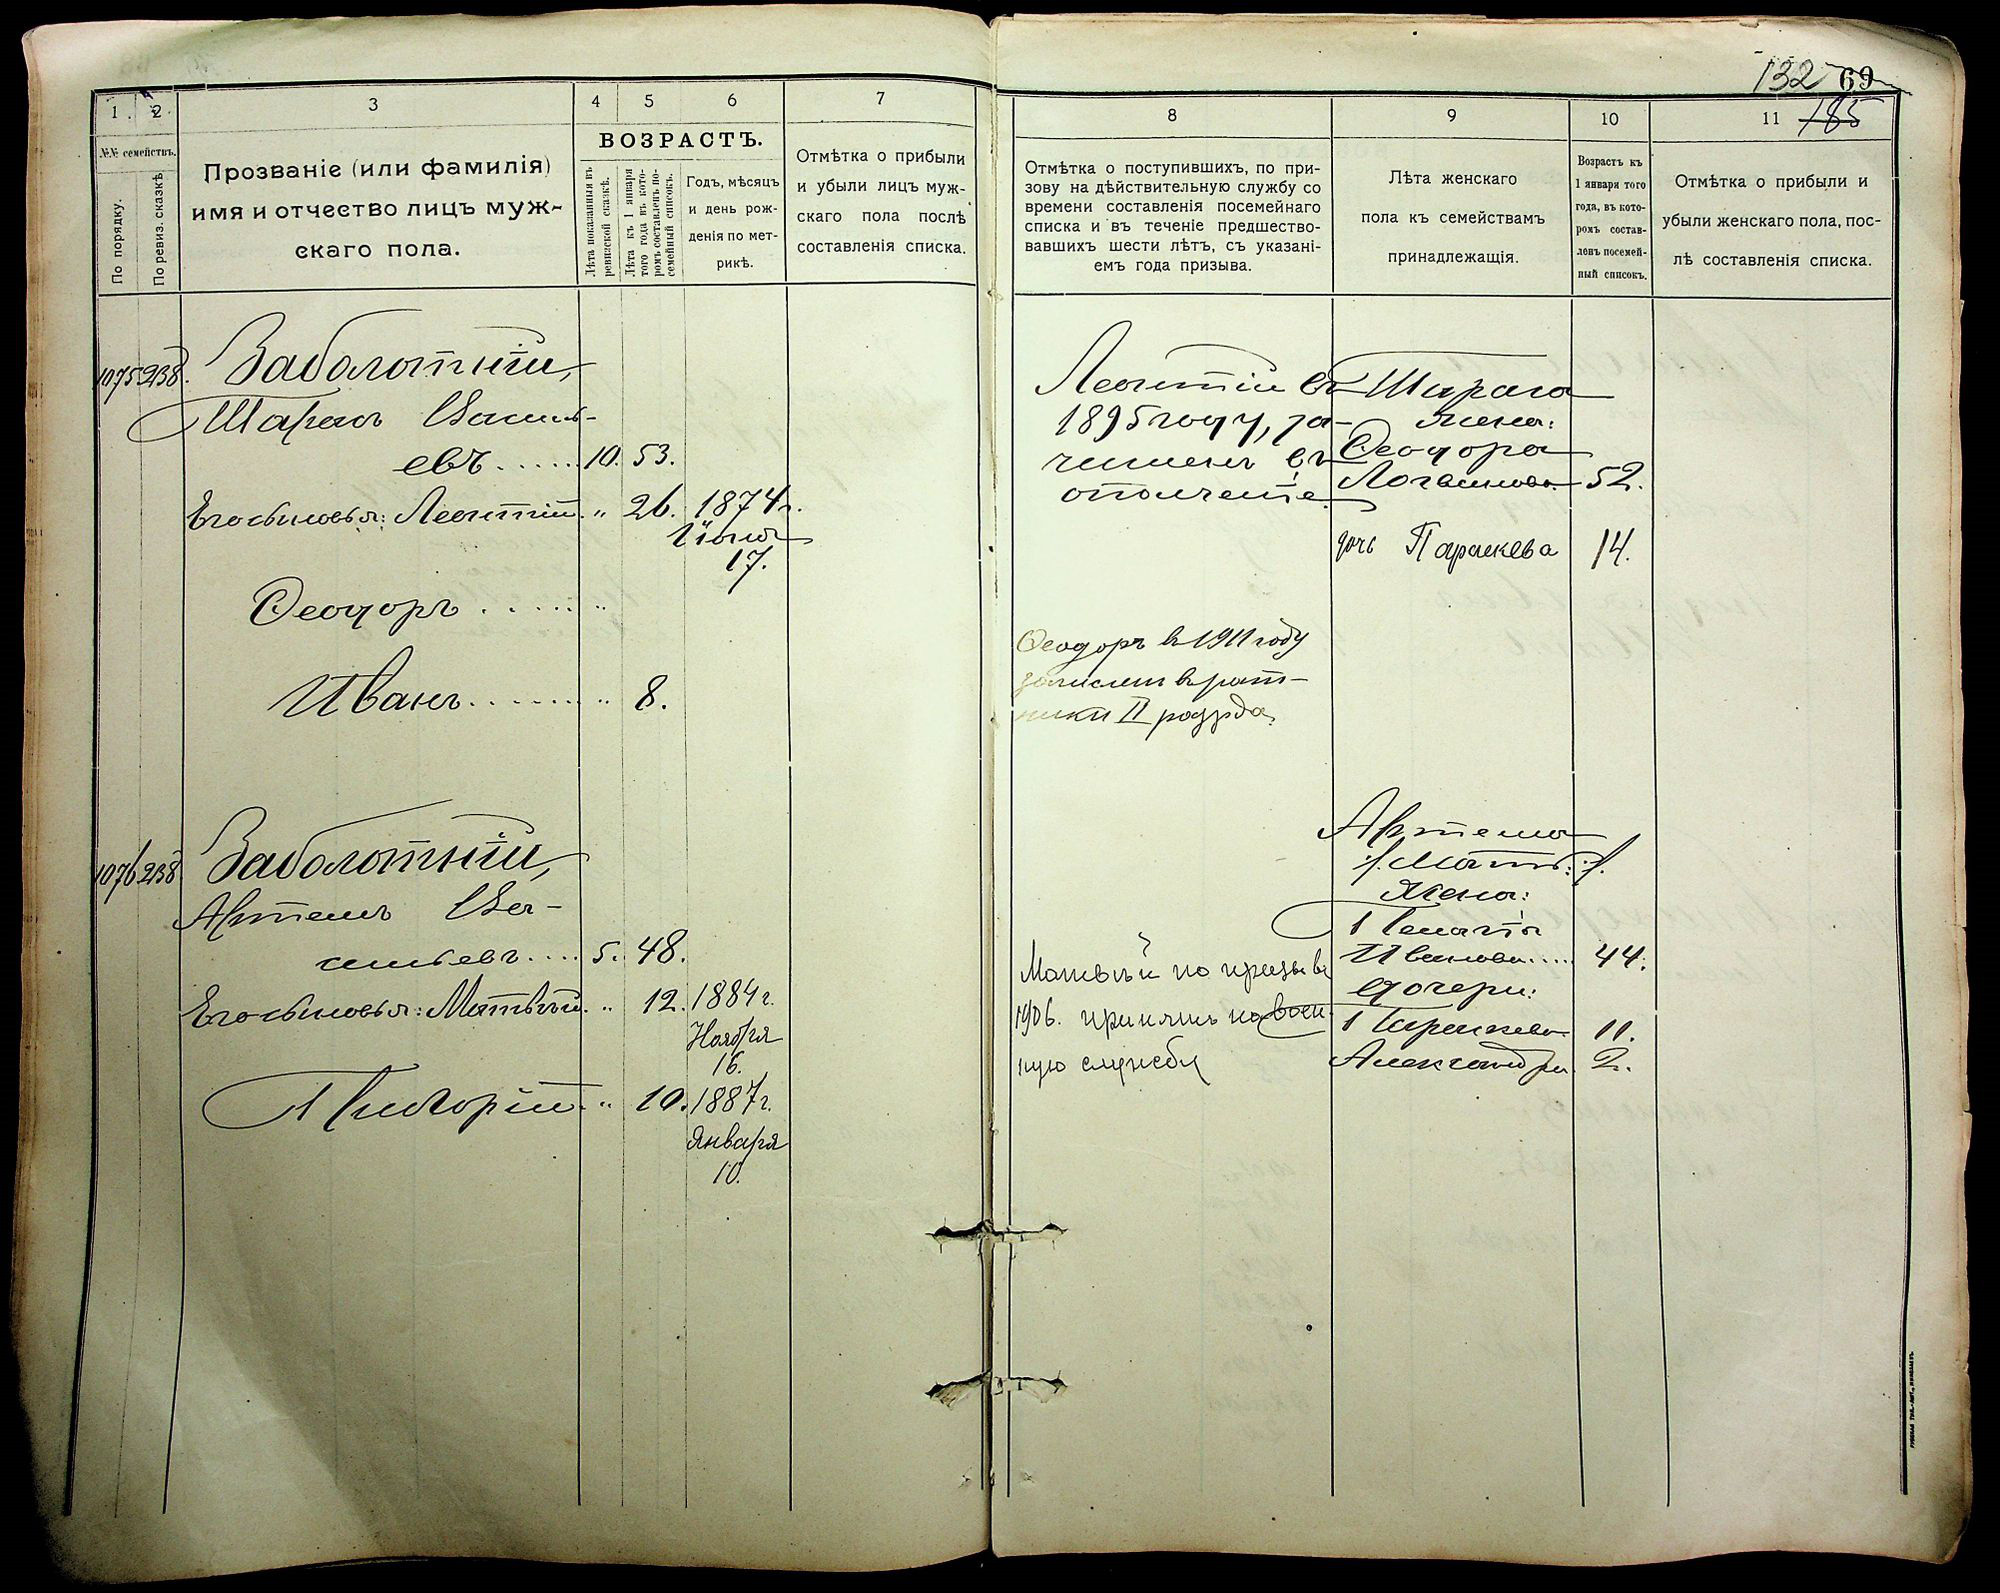 1 . 2
3
4
5
6
7
№№ семействъ.
По порядку.
По ревиз. сказкѣ
Прозваніе (или фамилія)
имя и отчество лицъ муж-
скаго пола.
ВОЗРАСТЪ.
Лѣта показанныя въ
ревизской сказкѣ.
Лѣта къ 1 января
того года въ кото-
ромъ составленъ по-
семейный списокъ.
Годъ, мѣсяцъ
и день рож-
денія по мет-
рикѣ.
Отмѣтка о прибыли
и убыли лицъ муж-
скаго пола послѣ
составленія списка.
1075 238. Заболотній,
Тарасъ Василь-
евъ...... 10. 53.
Его сыновья: Леонтій. " 26. 1874 г.
Іюня
17.
Ѳеодоръ ...... "
Иванъ ....... " 8.
1076 238 Заболотній,
Артемъ Ва-
сильевъ.... 5. 48.
Его сыновья: Матвѣй. " 12. 1884 г.
Ноября
16.
Григорій. " 10. 1887 г.
Января
10.
132 69
185
8
9
10
11
Отмѣтка о поступившихъ, по при-
зову на дѣйствительную службу со
времени составленія посемейнаго
списка и въ теченіе предшество-
вавшихъ шести лѣтъ, съ указані-
емъ года призыва.
Лѣта женскаго
пола къ семействамъ
принадлежащія.
Возрастъ къ
1 января того
года, въ кото-
ромъ состав-
ленъ посемей-
ный списокъ.
Отмѣтка о прибыли и
убыли женскаго пола, пос-
лѣ составленія списка.
Леонтій въ
1895 году, за-
численъ въ
ополченіе.
Тараса
жена:
Ѳеодора
Логвинова 52.
дочь Параскева 14.
Ѳеодоръ въ 1911 году
зачисленъ въ рат-
ники II разряда.
Артема
Мать:
Жена:
Иванова..... 44.
дочери:
Параскева 11.
Александра 2.
Матвѣй по призыву
1906. принятъ на воен-
ную службу